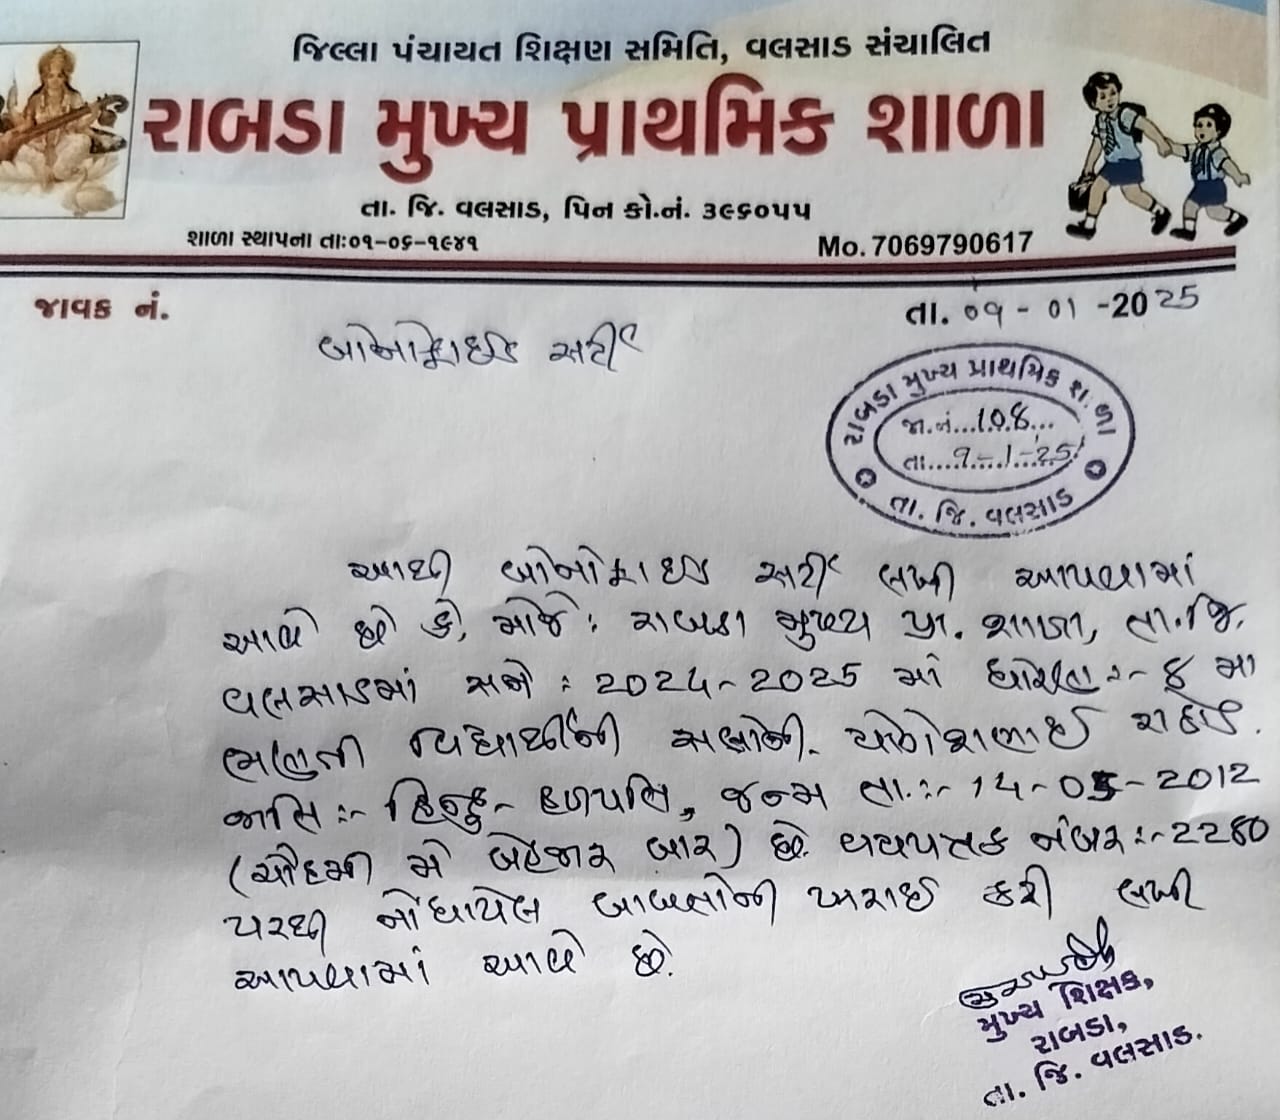 જિલ્લા પંચાયત શિક્ષણ સમિતિ, વલસાડ સંચાલિત
રાબડા મુખ્ય પ્રાથમિક શાળા
તા. જિ. વલસાડ, પિન કો.નં. ૩૯૬૦૫૫
શાળા સ્થાપના તાઃ૦૧-૦૬-૧૯૪૧
Mo. 7069790617
જાવક નં.
તા. ૦૧ - ૦1 -2025
બોનોફાઈડ સર્ટી
રાબડા મુખ્ય પ્રાથમિક શાળા
જા.નં...108...
તા....9-1-25
તા. જિ. વલસાડ
આથી બોનોફાઈડ સર્ટી લખી આપવામાં
આવે છે કે, મોજે : રાબડા મુખ્ય પ્રા. શાળા, તા.જિ.
વલસાડમાં સને : 2024-2025 માં ધોરણ :- ૬ મા
ભણતી વિદ્યાર્થીની સલોની રાઠોડ.
જાતિ :- હિન્દુ - હળપતિ, જન્મ તા.:- 14-05-2012
(ચૌદમી મે બેહજાર બાર) છે. વયપત્રક નંબર :- 2280
પરથી નોંધાયેલ બાબતોની ખરાઈ કરી લખી
આપવામાં આવે છે.
મુખ્ય શિક્ષક,
રાબડા,
તા. જિ. વલસાડ.